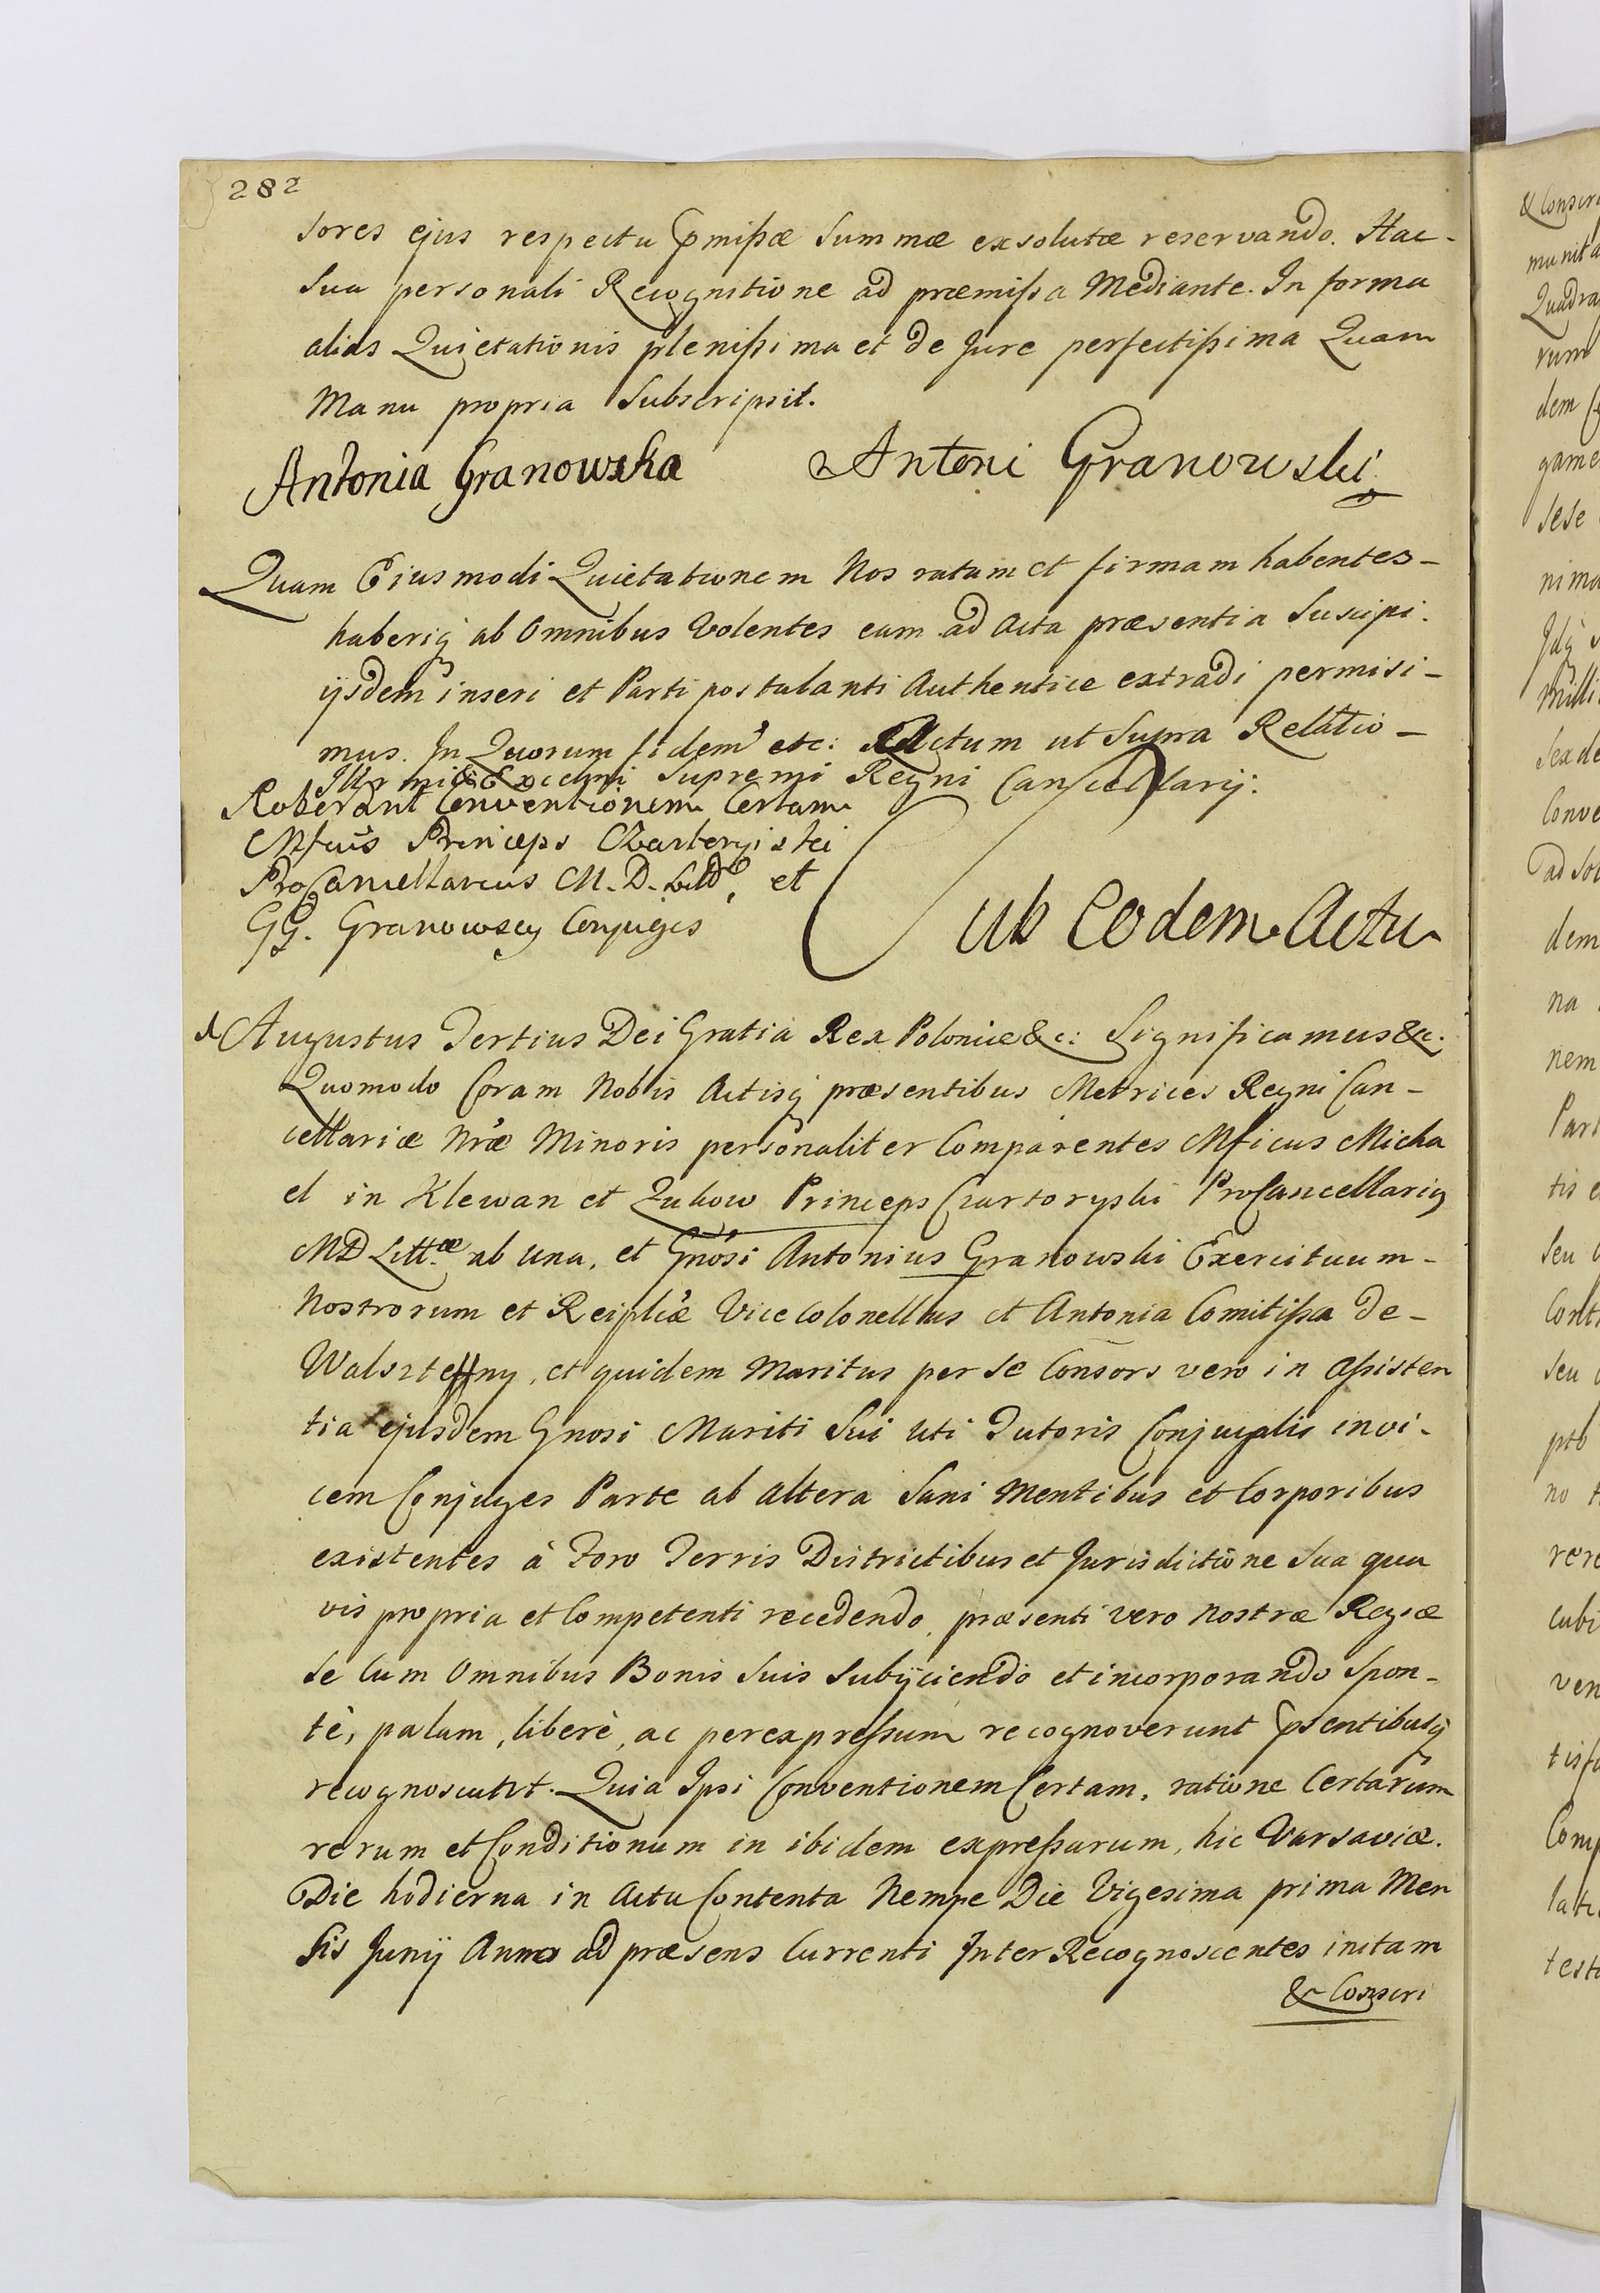 282
sores ejus respectu pmißæ Summæ exsolutæ reservando. Hac-
Sua personali Recognitione ad præmißa Mediante. In forma
alias Quietationis plenißima et de Jure perfectißima Quam
Manu propria Subscripsit.
Antonia Granowska Antoni Granowski
Quam Eiusmodi Quietationem Nos ratam et firmam habentes-
haberiq ab Omnibus Volentes eam ad Acta præsentia Suscipi.
ijsdem inseri et Parti postulanti Authentice extradi permisi-
mus. In Quorum fidem etc: Actum ut Supra Relatio-
Illrmi & Excelmi Supremi Regni Cancellarij:
Roberant Conventionem Certam
Mfcus Princeps Czartoryiski
ProCancellarius M. D. Litt, et
GG. Granowscy Conjuges
Sub Eodem Actu
Augustus Tertius Dei Gratia Rex Poloniæ &c: Significamus &c.
Quomodo Coram Nobis Actisq præsentibus Metrices Regni Can-
cellariæ Nræ Minoris personaliter Comparentes Mficus Micha
el in Klewan et Zukow Princeps Czartoryski ProCancellariq
MD Littæ ab una, et Gnosi Antonius Granowski Exercituum-
Nostrorum et Reiplicæ Vice Colonellus et Antonia Comitißa de-
Walszteyny, et quidem Maritus per se Consors vero in Aßisten
tia ejusdem Gnosi Mariti Sui uti Tutoris Conjugalis invi-
cem Conjuges Parte ab altera Sani Mentibus et Corporibus
existentes à Foro Terris Districtibus et Jurisdictione Sua qua
vis propria et Competenti recedendo, præsenti vero Nostræ Regiæ
se Cum Omnibus Bonis Suis Subijciendo et incorporando Spon-
tè, palam, liberè, ac perexpreßum recognoverunt psentibusq
recognoscunt. Quia Ipsi Conventionem Certam, ratione Certarum
rerum et Conditionum in ibidem expreßarum, hic Varsaviæ.
Die hodierna in Actu Contenta Nempe Die Vigesima prima Men
sis Junij Anno ad præsens Currenti Inter Recognoscentes initam
& Conscri
& Conscr
munita
Quadra
rum
dem
game
sese
nima
Jdq
Milli
Sexde
Conve
ad So
dem
na
nem
Part
tis
Seu
Cont
seu
pto
no
rere
cubi
ven
tisf
Comp
lati
test